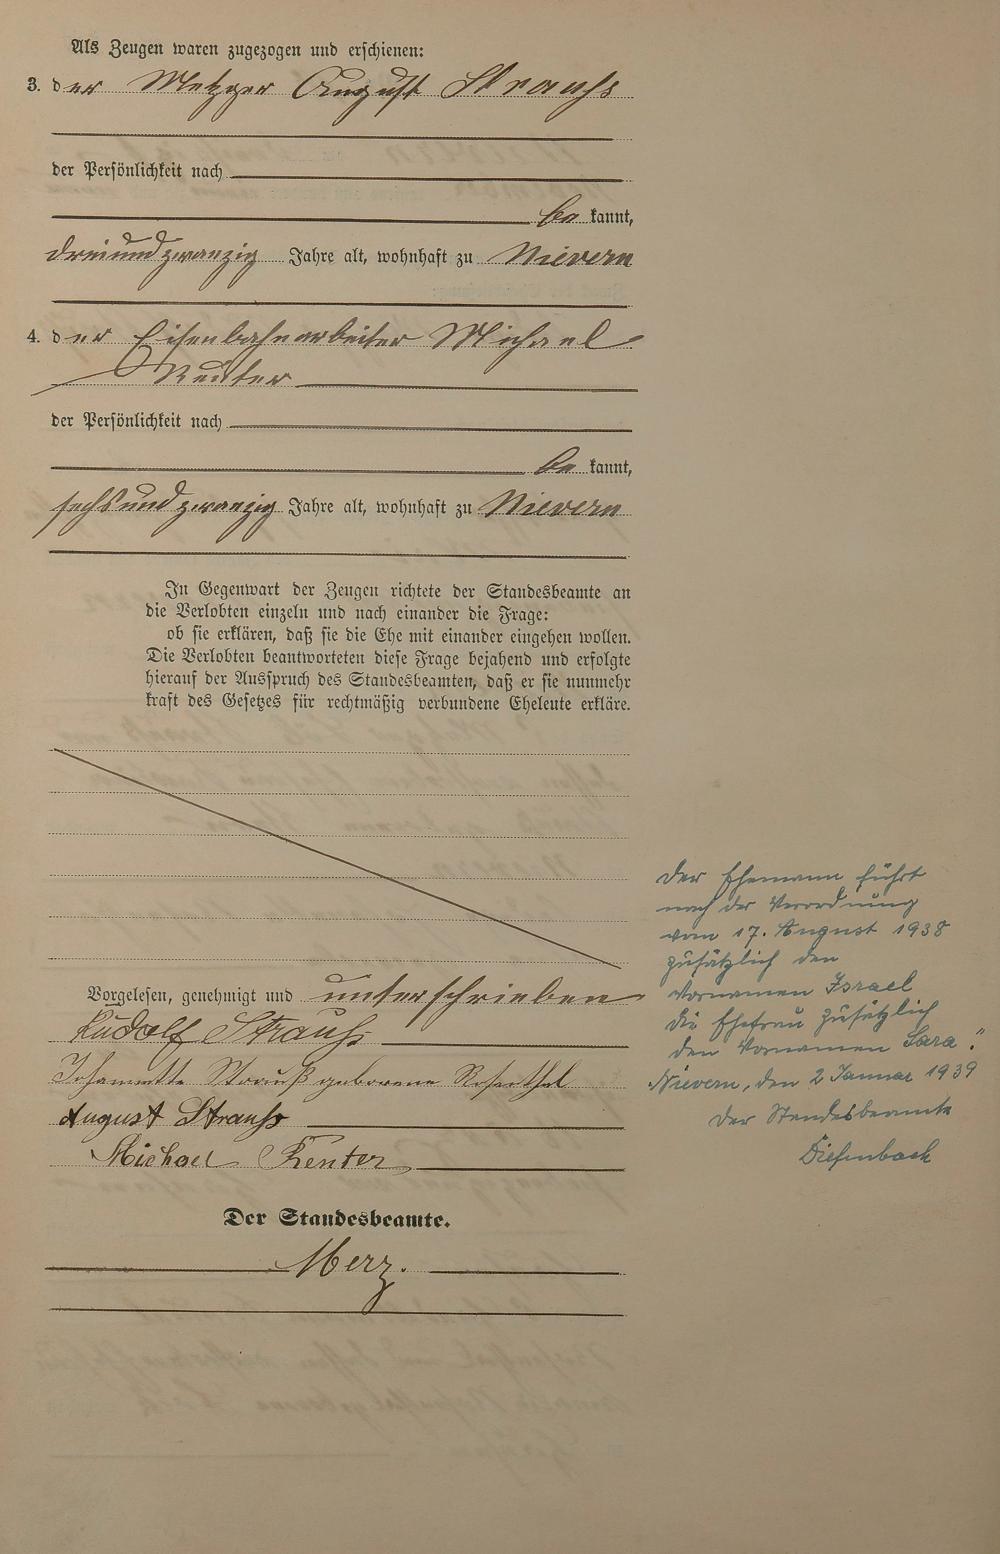 Als Zeugen waren zugezogen und erschienen:
3. der Metzger August Strauß
der Persönlichkeit nach
bekannt,
dreiundzwanzig Jahre alt, wohnhaft zu Nievern
4. der Eisenbahnarbeiter Michael
Reuter
der Persönlichkeit nach
bekannt,
sechsundzwanzig Jahre alt, wohnhaft zu Nievern
In Gegenwart der Zeugen richtete der Standesbeamte an
die Verlobten einzeln und nach einander die Frage:
ob sie erklären, daß sie die Ehe mit einander eingehen wollen.
Die Verlobten beantworteten diese Frage bejahend und erfolgte
hierauf der Ausspruch des Standesbeamten, daß er sie nunmehr
kraft des Gesetzes für rechtmäßig verbundene Eheleute erkläre.
Vorgelesen, genehmigt und unterschrieben
Rudolf Strauß
Johannette Strauß geborene Rosenthal
August Strauß
Michael Reuter
Der Standesbeamte.
Merz.
Der Ehemann führt
nach der Verordnung
vom 17. August 1938
zusätzlich den
Vornamen Israel
die Ehefrau zusätzlich
den Vornamen Sara."
Nievern, den 2 Januar 1939
Der Standesbeamte
Diefenbach